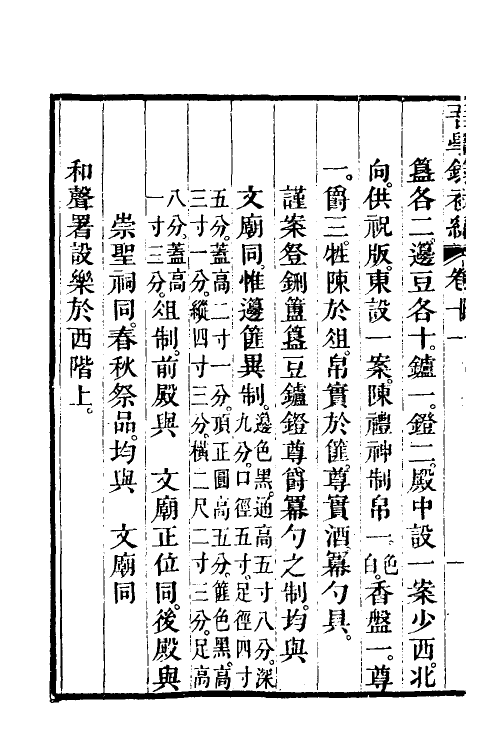 吾學錄初編 卷十
簋各二。籩豆各十。鑪一。鐙二。殿中設一案少西。北
向。供祝版。東設一案。陳禮神制帛一。色白。香盤一。尊
一。爵三。牲陳於俎。帛實於篚。尊實酒。冪勺具。
謹案登鉶簠簋豆鑪鐙尊爵冪勺之制。均與
文廟同。惟籩篚異制。籩色黑。通高五寸八分。深九分。口徑五寸。足徑四寸
五分。蓋高二寸一分。頂正圓高五分。篚色黑高三寸一分。縱四寸三分。橫二尺二寸三分。足高
八分。蓋高一寸三分。俎制。前殿與　文廟正位同。後殿與
崇聖祠同。春秋祭品。均與　文廟同
和聲署設樂於西階上。